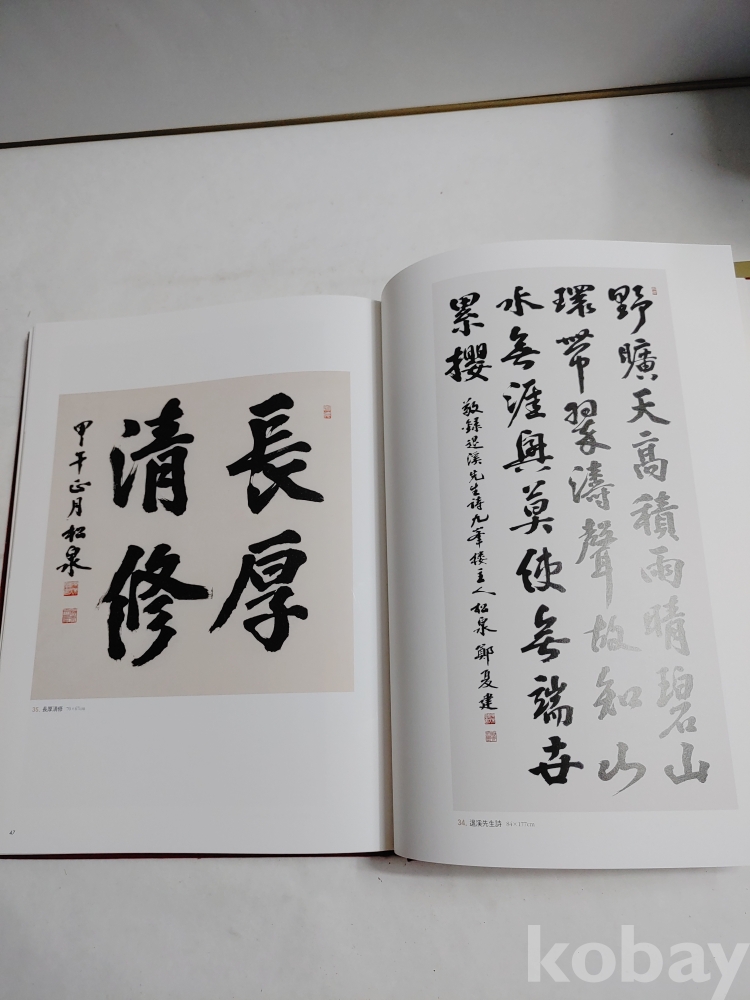 野曠天高積雨晴碧山
環帶翠濤聲故知山
水無涯興莫使無端世
累攖
敬録退溪先生詩九峯樓主人松泉鄭夏建
34. 退溪先生詩 64×177cm
長厚
清修
甲午正月松泉
35. 長厚清修
kobay